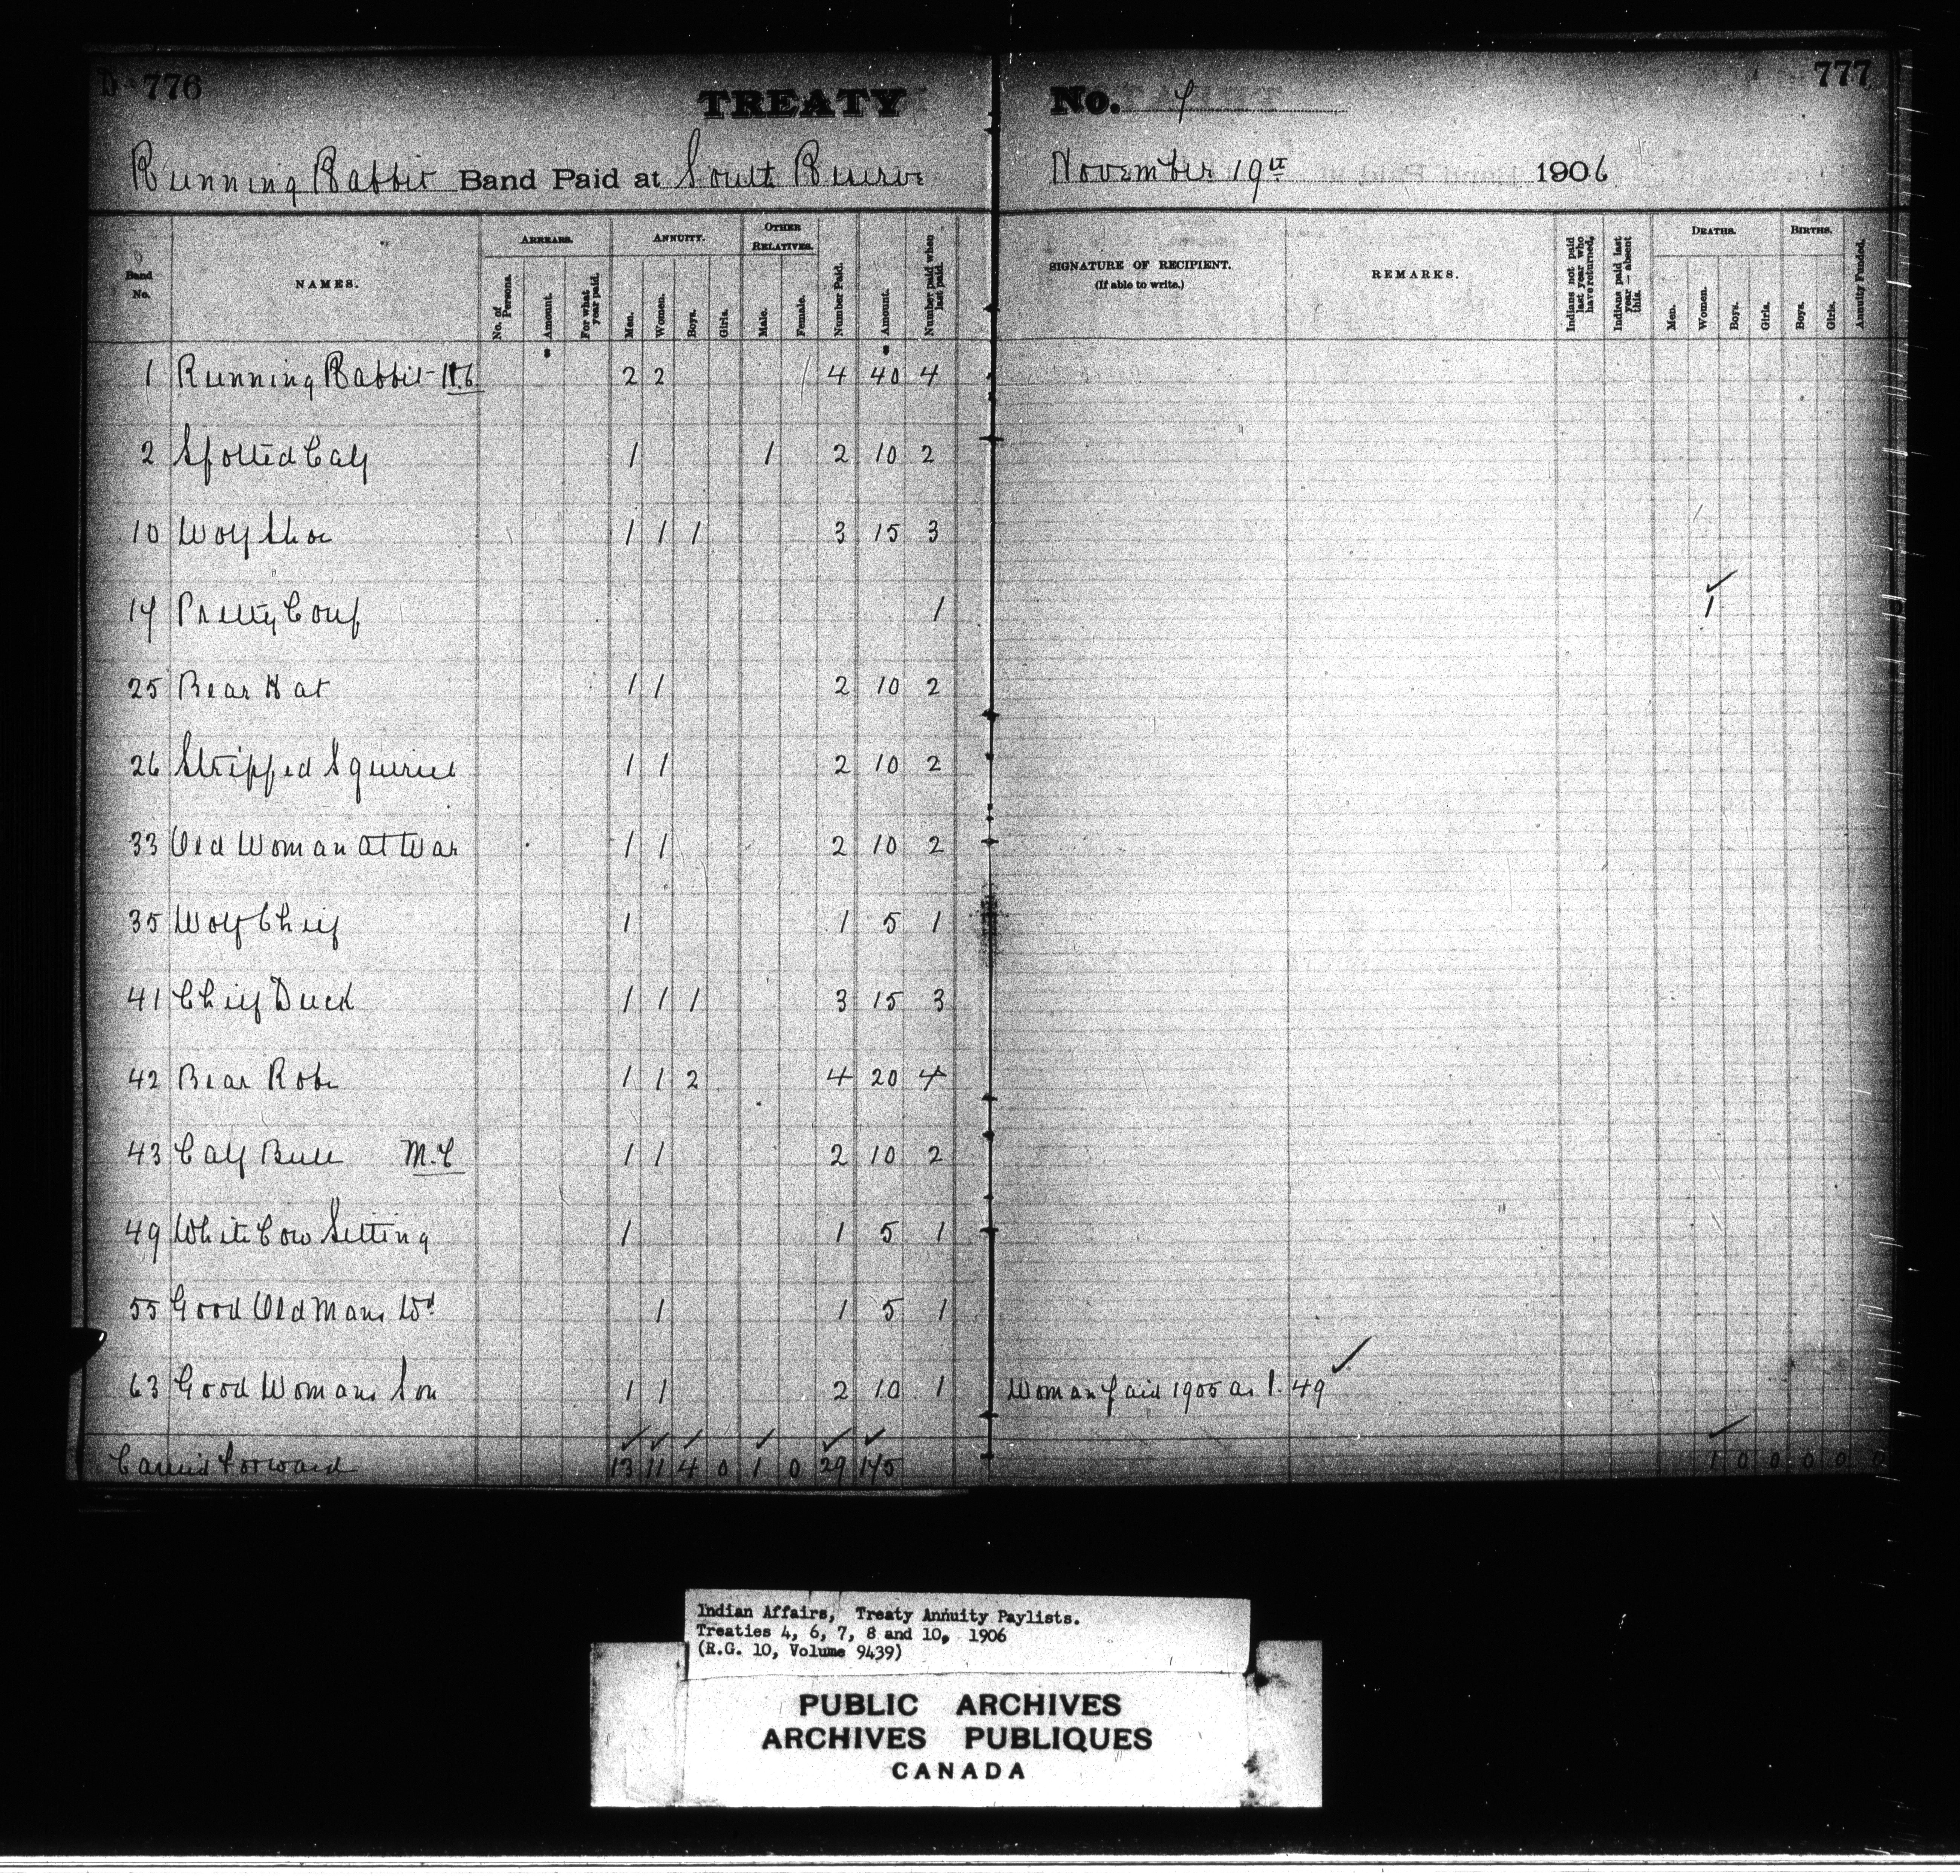 D 776
777
TREATY No. 7
Running Rabbit Band Paid at South Reserve November 19th 1906
Band No. NAMES. ARREARS. No. of Persons. Amount. For what year paid. ANNUITY. Men. Women. Boys. Girls. OTHER RELATIVES. Male. Female. Number Paid. Amount. Number paid when last paid. SIGNATURE OF RECIPIENT. (If able to write.) REMARKS. Indians not paid last year who have returned. Indians paid last year — absent this. DEATHS. Men. Women. Boys. Girls. BIRTHS. Boys. Girls. Annuity Funded.
1 Running Rabbit 2 2 4 40 4
2 Spotted Calf 1 1 2 10 2
10 Wolf Shoe 1 1 1 3 15 3
17 Pretty Coup 1 1
25 Bear Hat 1 1 2 10 2
26 Stripped Squirrel 1 1 2 10 2
33 Old Woman at War 1 1 2 10 2
35 Wolf Chief 1 1 5 1
41 Chief Duck 1 1 1 3 15 3
42 Bear Robe 1 1 2 4 20 4
43 Calf Bull M.C 1 1 2 10 2
49 White Cow Sitting 1 1 5 1
55 Good Old Mans Wd 1 1 5 1
63 Good Womans Son 1 1 2 10 1 Woman paid 1905 as 1. 49
Carried forward 13 11 4 0 1 0 29 175 1 0 0 0 0 0
Indian Affairs, Treaty Annuity Paylists.
Treaties 4, 6, 7, 8 and 10, 1906
(R.G. 10, Volume 9439)
PUBLIC ARCHIVES
ARCHIVES PUBLIQUES
CANADA